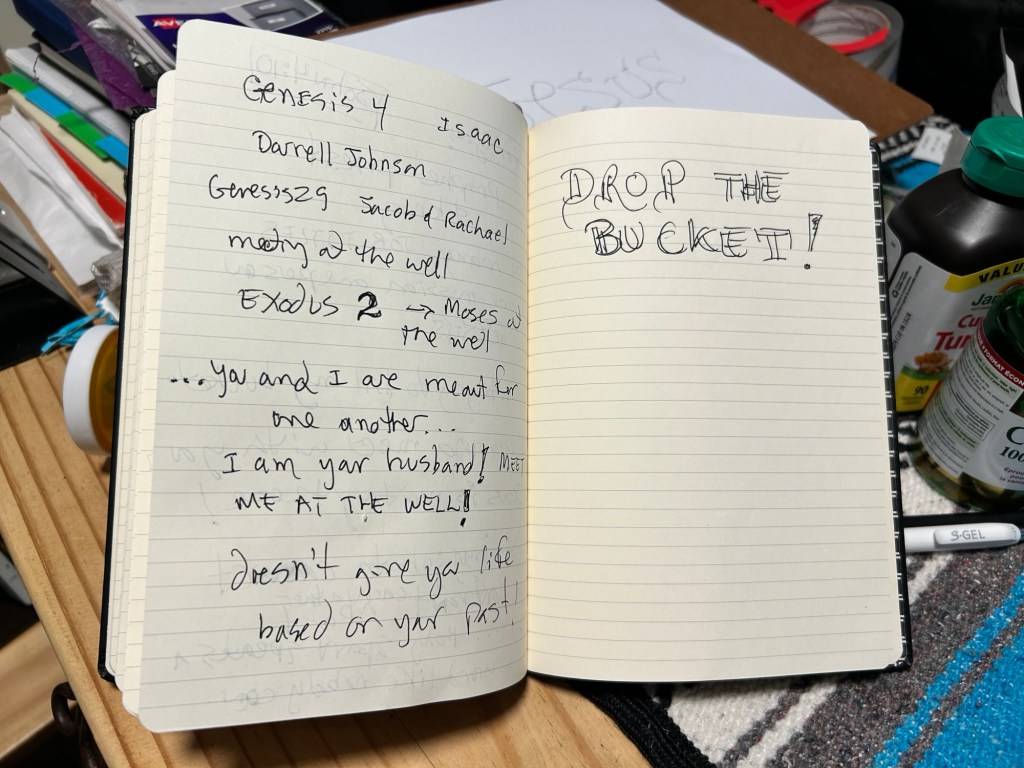 Genesis 4 Isaac
Darrell Johnson
Genesis 29 Jacob & Rachael
meeting at the well
Exodus 2 → Moses at
the well
...you and I are meant for
one another...
I am your husband! MEET
ME AT THE WELL!
doesn't give you life
based on your past!
DROP THE
BUCKET!
VALU
Jam
Cu
Tur
90
C
100
S·GEL
AVE